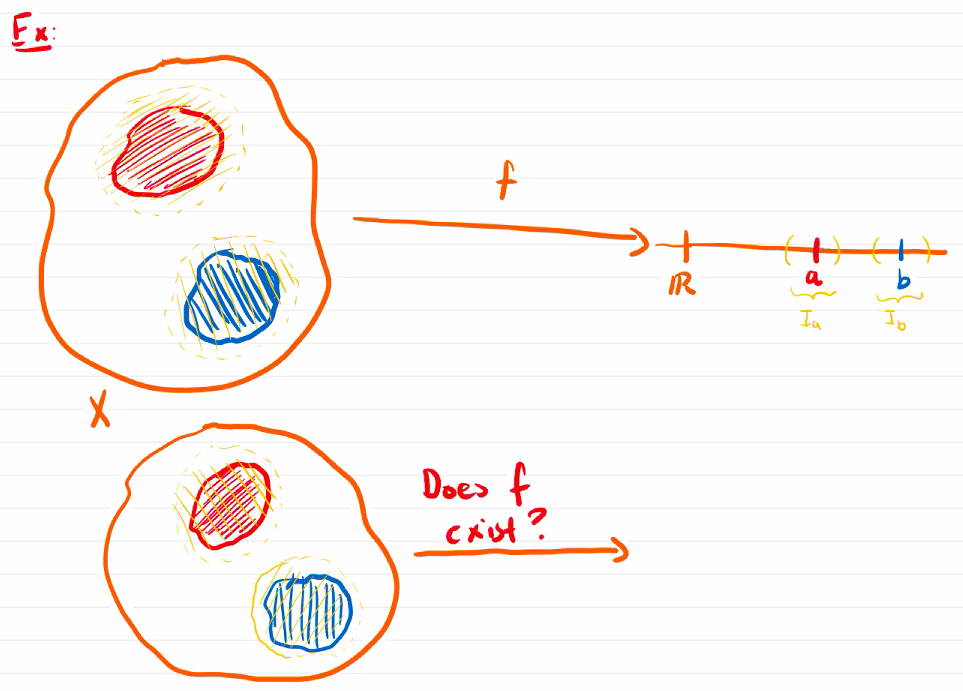 Ex:
f
ℝ
a
b
I_a
I_b
X
Does f
exist?